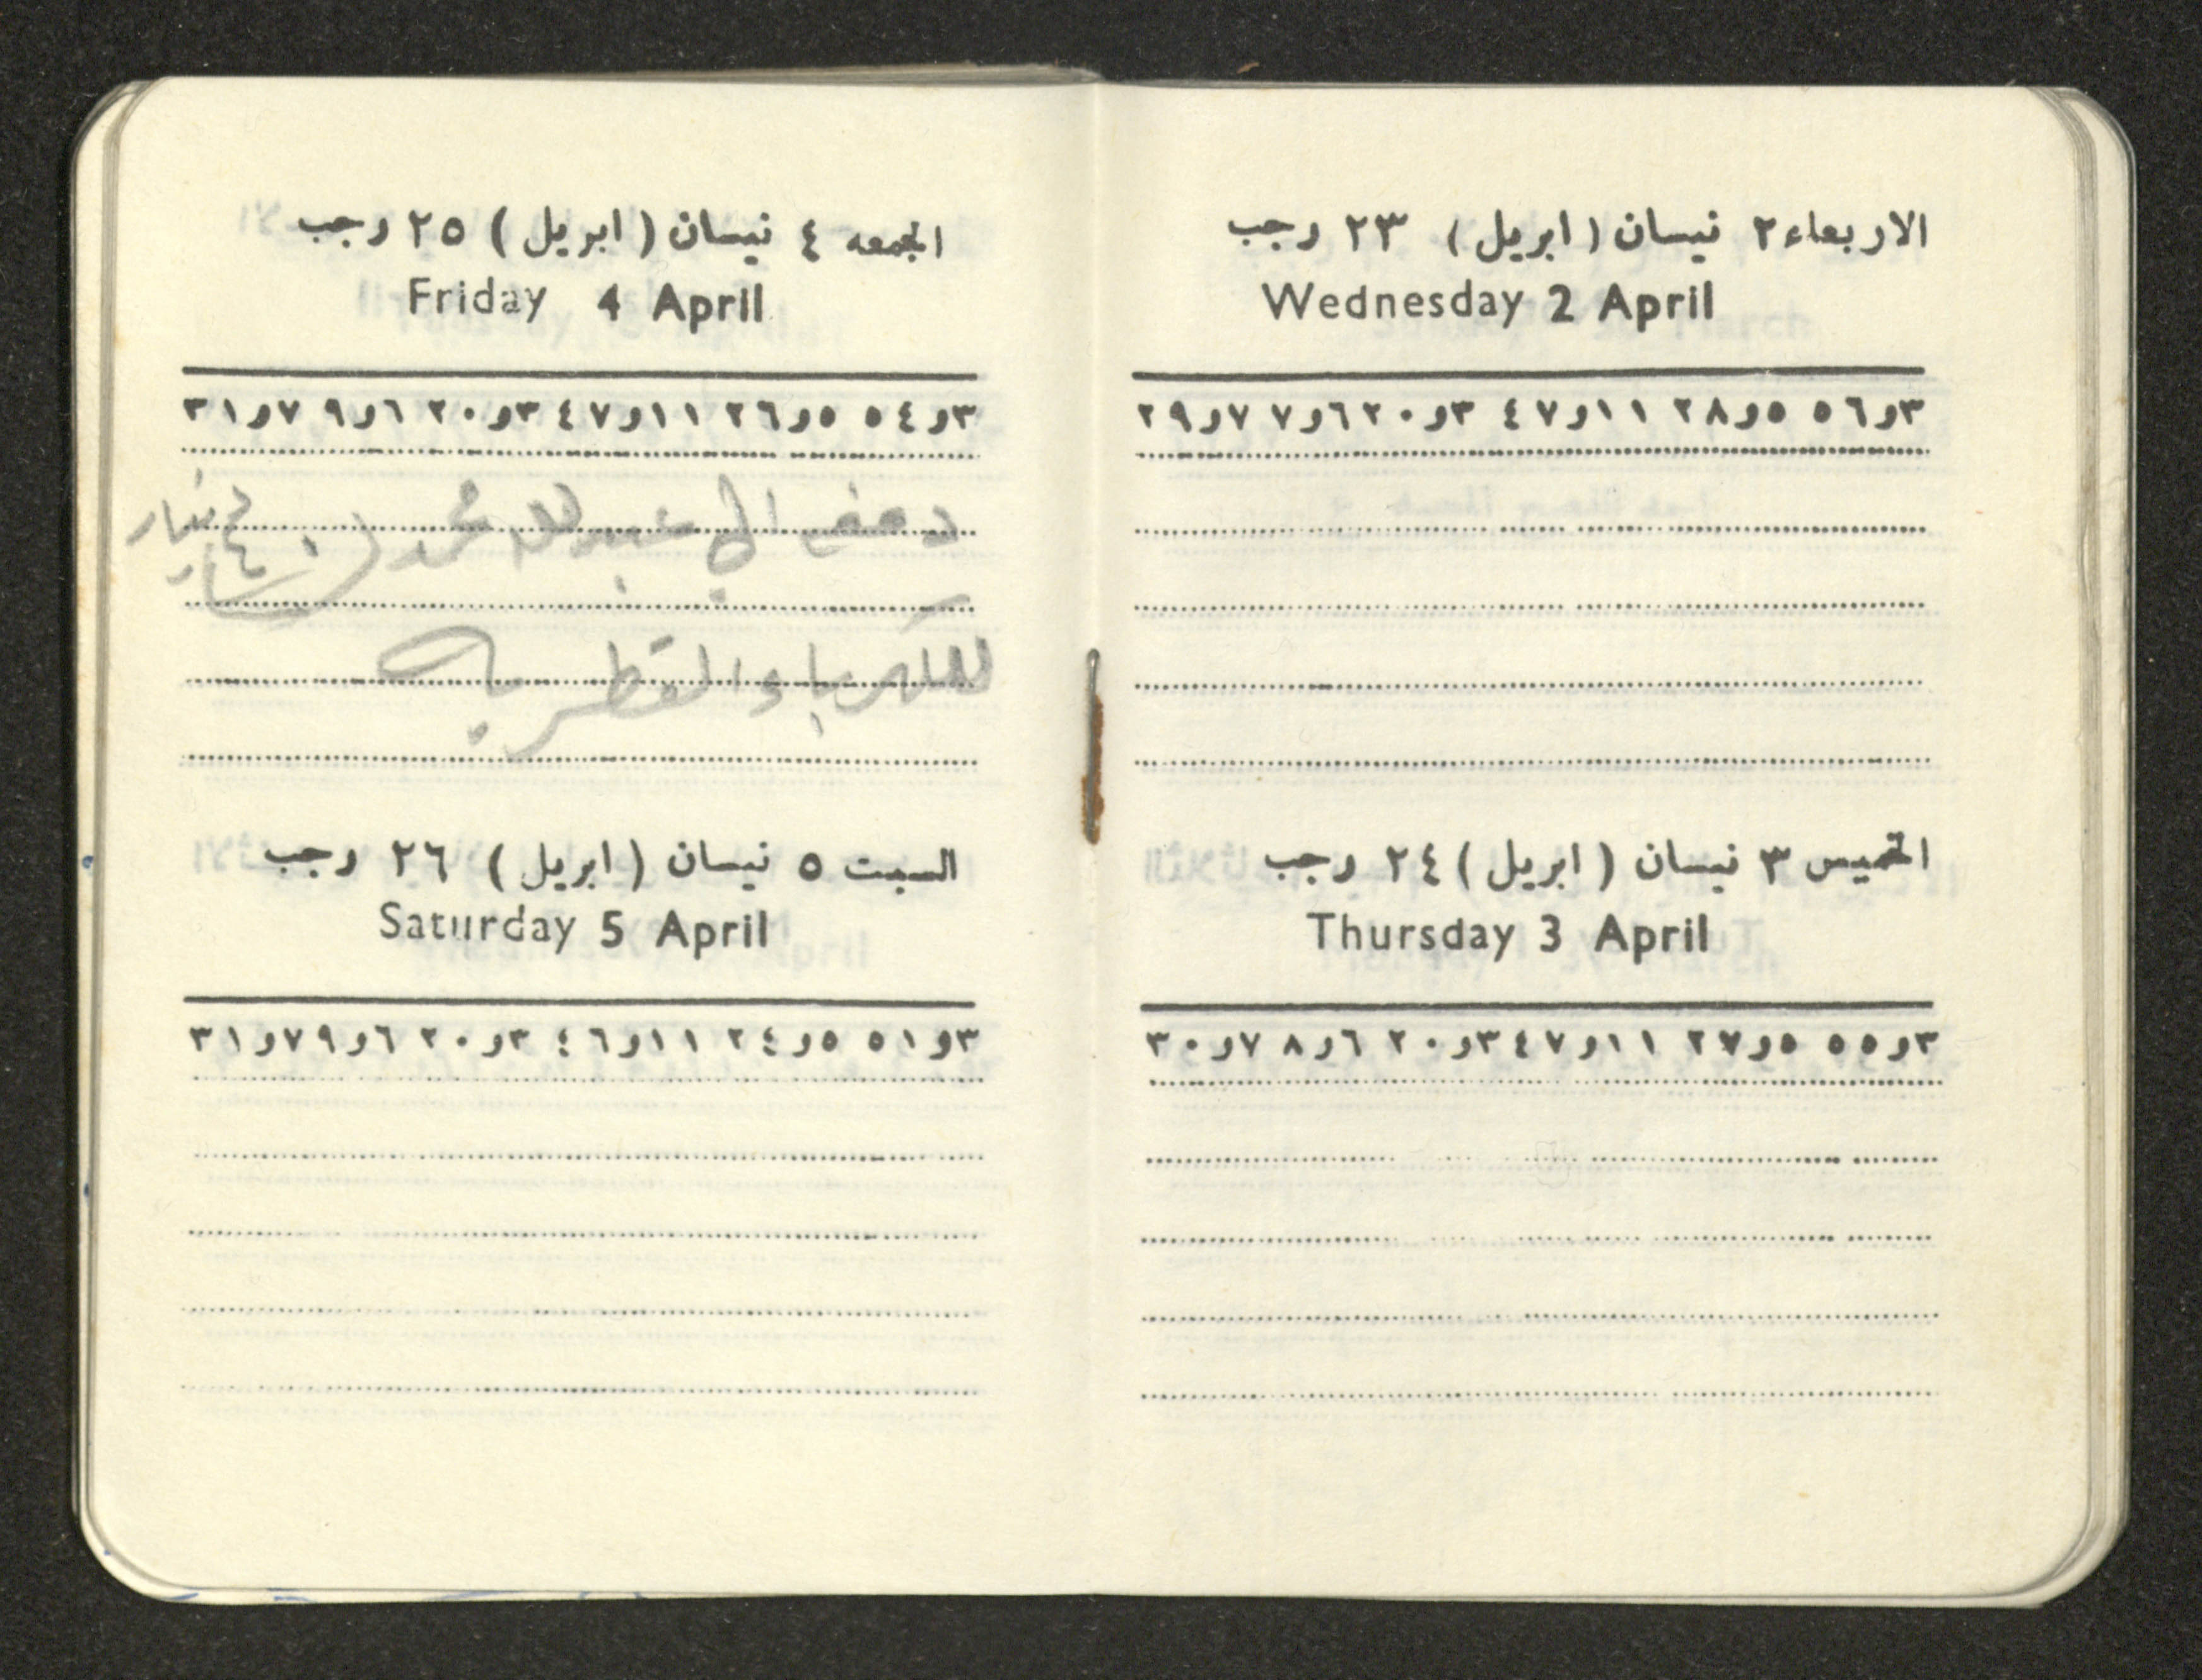 الاربعاء ٢ نيسان ( ابريل ) ٢٣ رجب
Wednesday 2 April
٣ر٥٦ ٥ر٢٨ ١١ر٤٧ ٣ر٢٠ ٦ر٧ ٧ر٢٩
الخميس ٣ نيسان ( ابريل ) ٢٤ رجب
Thursday 3 April
٣ر٥٥ ٥ر٢٧ ١١ر٤٧ ٣ر٢٠ ٦ر٨ ٧ر٣٠
الجمعه ٤ نيسان ( ابريل ) ٢٥ رجب
Friday 4 April
٣ر٥٤ ٥ر٢٦ ١١ر٤٧ ٣ر٢٠ ٦ر٩ ٧ر٣١
دفع الى عبدالله محمد
للكهرباء القطريه
السبت ٥ نيسان ( ابريل ) ٢٦ رجب
Saturday 5 April
٣ر٥١ ٥ر٢٤ ١١ر٤٦ ٣ر٢٠ ٦ر٩ ٧ر٣١